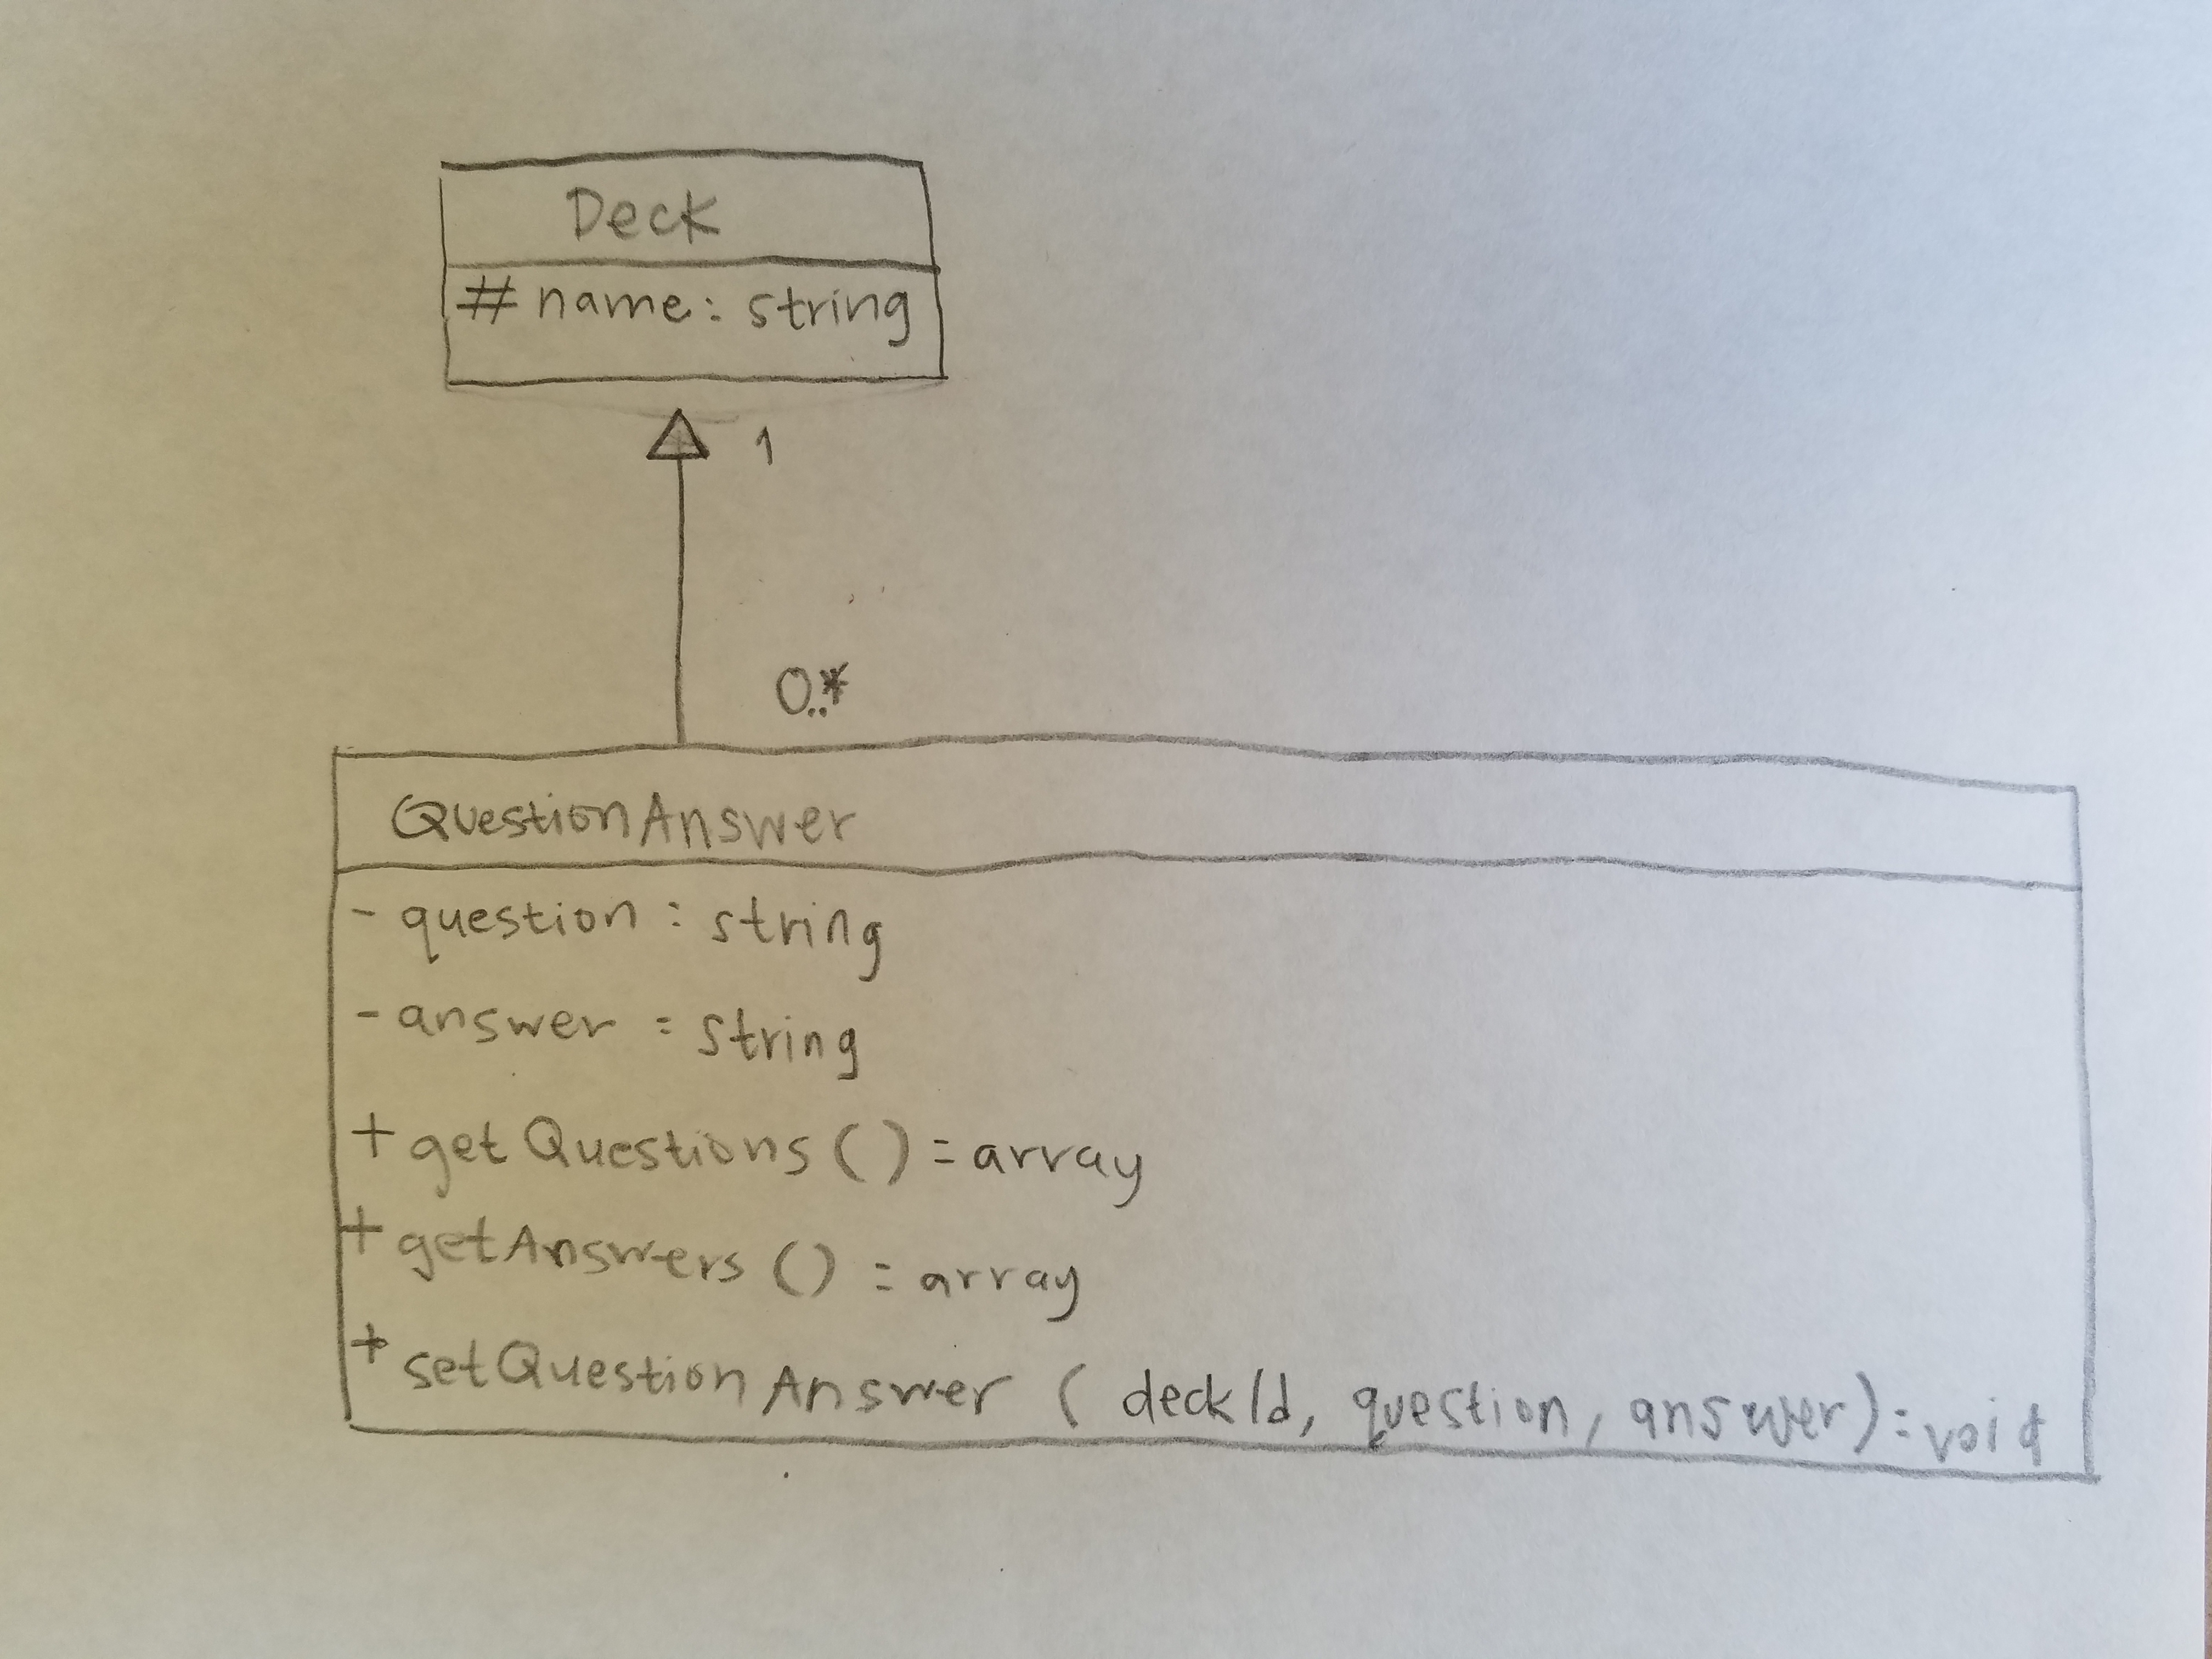 Deck
# name: string
1
0..*
QuestionAnswer
- question: string
- answer: string
+ getQuestions(): array
+ getAnswers(): array
+ setQuestionAnswer (deckId, question, answer): void